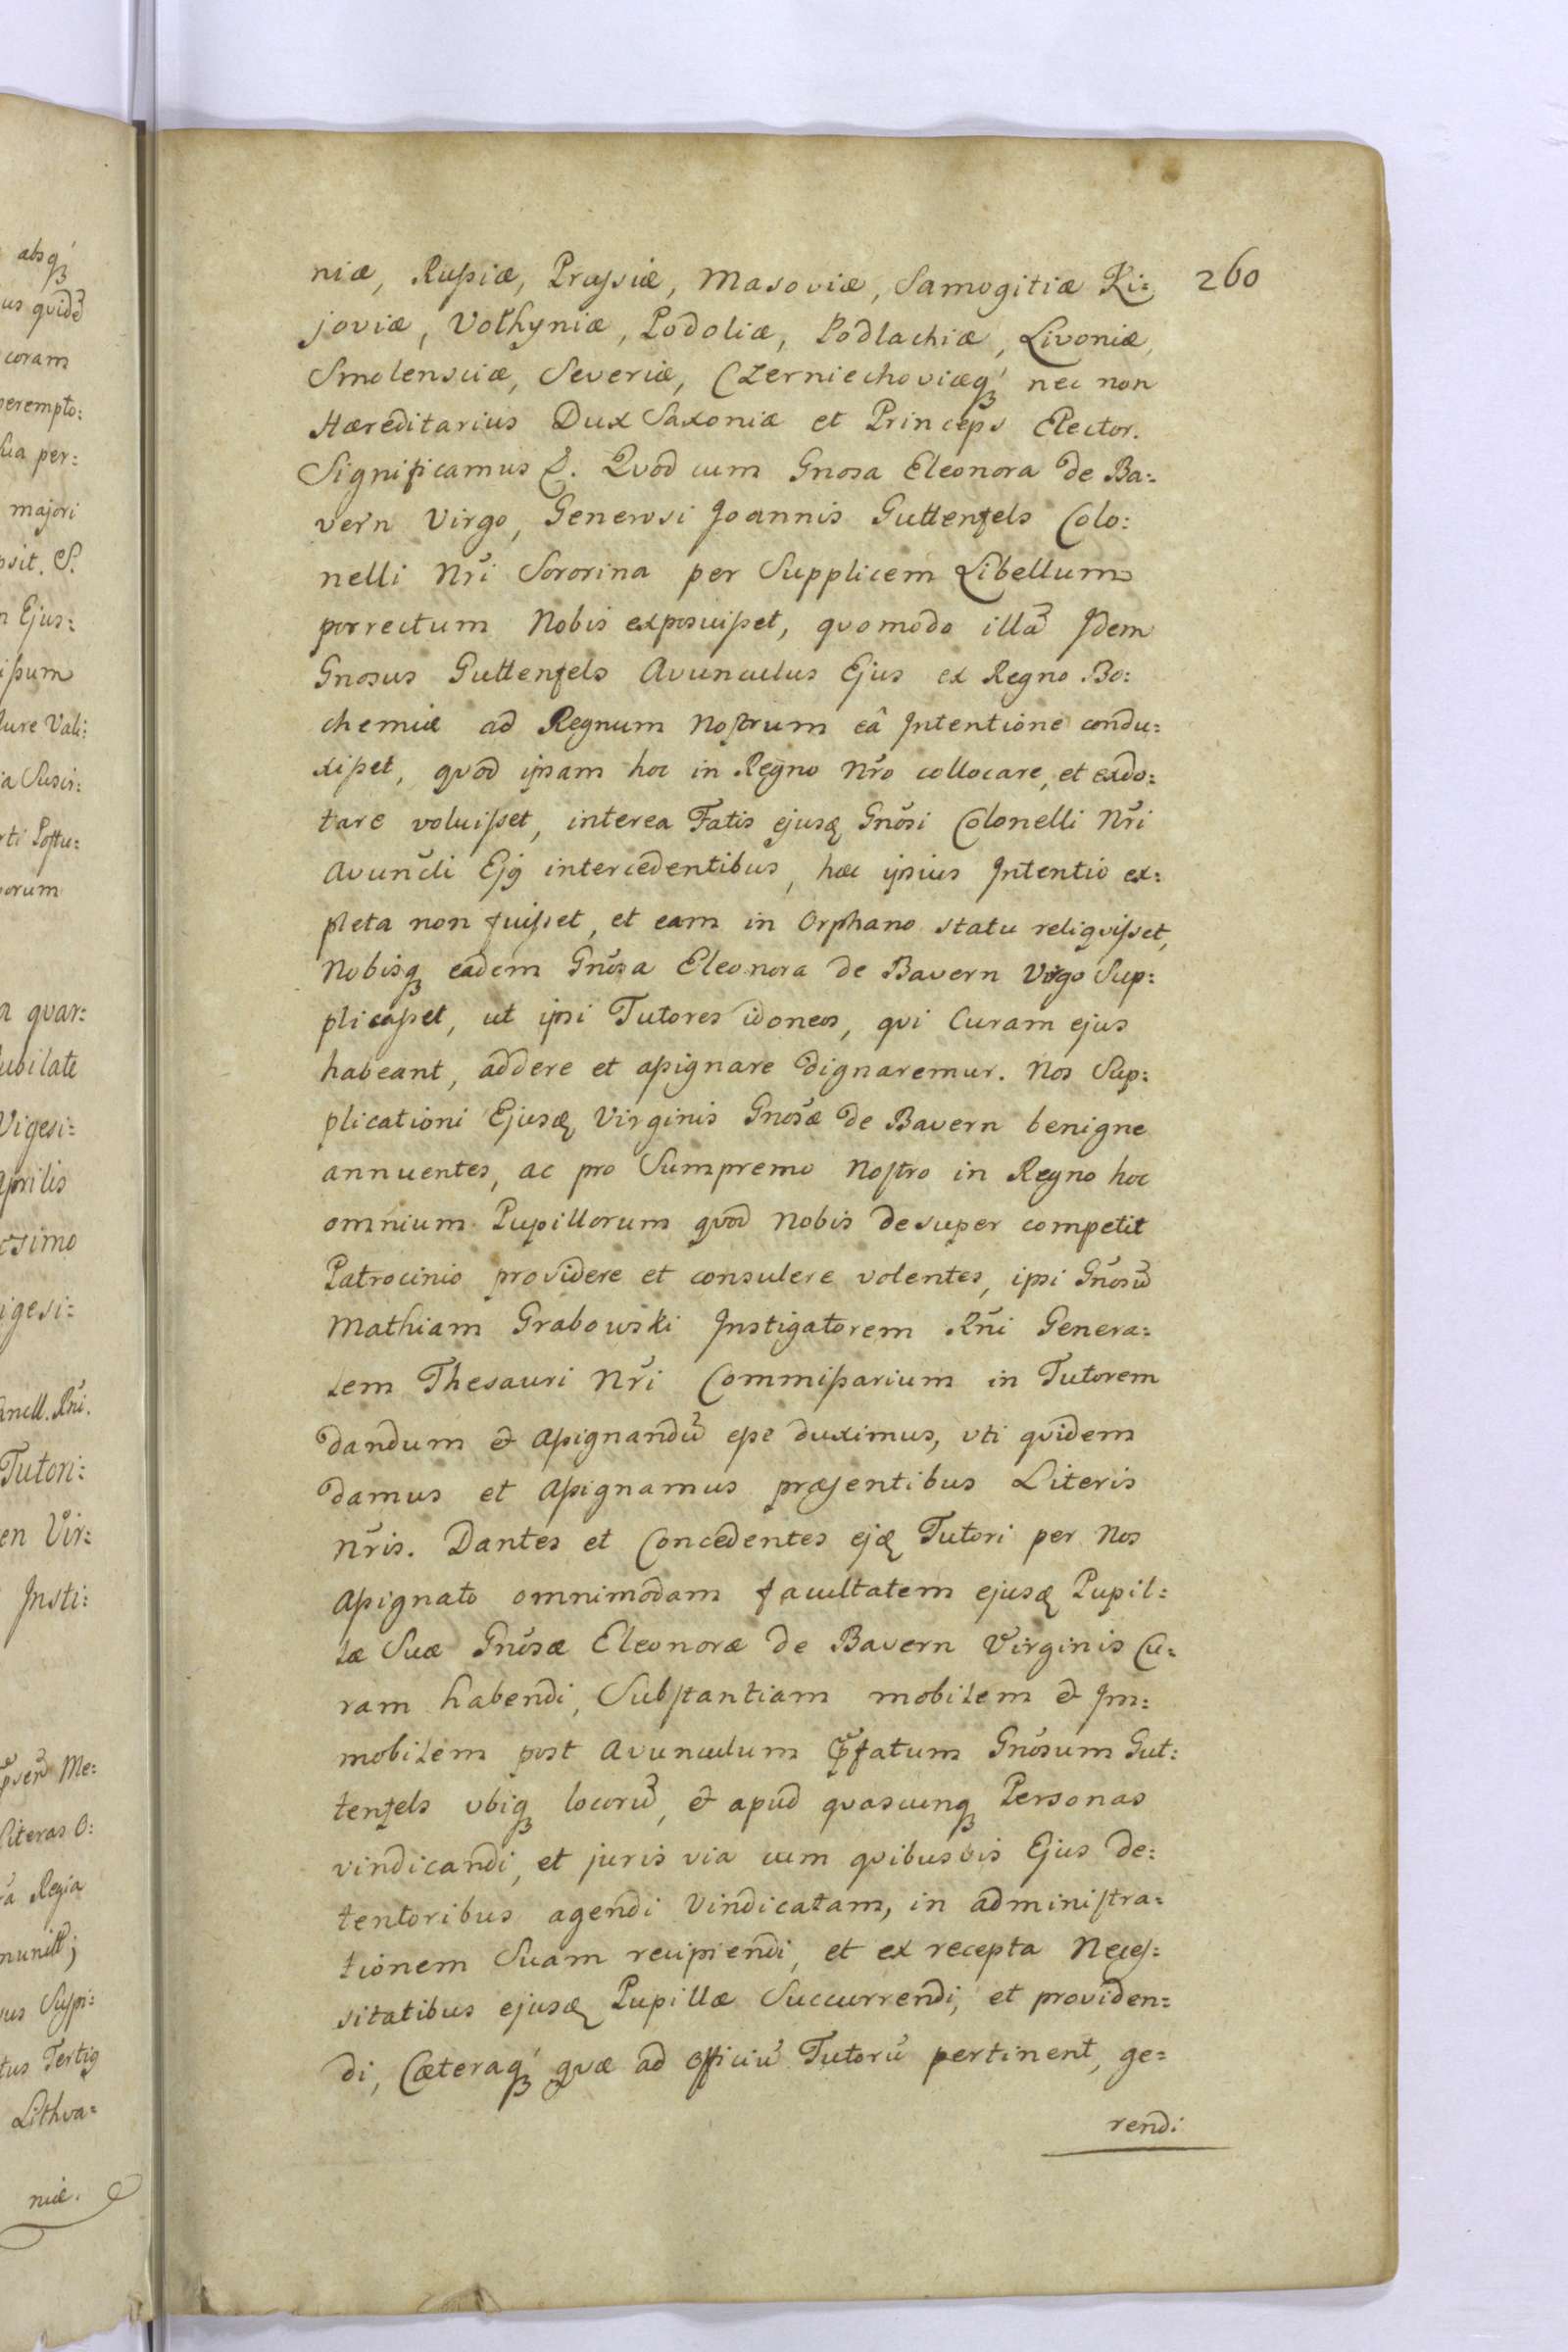 absq́
us quidē
coram
perempto:
lia per:
majori
osit. S.
n Ejus:
ipsum
Jure Vali:
ia Susci:
rti Postu:
vorum
a quar:
Jubilate
Vigesi:
Aprilis
esimo
igesi:
Cancll. Rñi.
Tutori:
en Vir:
Insti:
Me:
Literas O:
Regia
munitt;
Tertiꝯ
Lithva=
niæ.
260
niæ, Russiæ, Prussiæ, Masoviæ, Samogitiæ Ki:
joviæ, Volhyniæ, Podoliæ, Podlachiæ, Livoniæ,
Smolensciæ, Severiæ, Czerniechoviæq́ nec non
Hæreditarius Dux Saxoniæ et Princeps Elector.
Significamus &. Quod cum Gnosa Eleonora de Ba:
vern Virgo, Generosi Joannis Guttenfels Colo:
nelli Nr̃i Sororina per Supplicem Libellum
porrectum Nobis exposuisset, quomodo illā Idem
Gnosus Guttenfels Avunculus Ejus ex Regno Bo:
chemiæ ad Regnum Nostrum eâ Intentione condu:
xisset, quod ipsam hoc in Regno Nr̃o collocare, et exdo:
tare voluisset, interea Fatis ejusꝗ Gnõsi Colonelli Nr̃i
Avunc̃li Ejꝯ intercedentibus, hæc ipsius Intentio ex:
pleta non fuisset, et eam in Orphano statu reliquisset,
Nobisq eadem Gnõsa Eleonora de Bavern Virgo Sup:
plicasset, ut ipsi Tutores idoneos, qui Curam ejus
habeant, addere et assignare dignaremur. Nos Sup:
plicationi Ejusꝗ Virginis Gnõsæ de Bavern benigne
annuentes, ac pro Sumpremo Nostro in Regno hoc
omnium Pupillorum quod Nobis desuper competit
Patrocinio providere et consulere volentes, ipsi Gnõsū
Mathiam Grabowski Instigatorem Rñi Genera:
lem Thesauri Nr̃i Commissarium in Tutorem
dandum & assignandū esse duximus, uti quidem
damus et Assignamus præsentibus Literis
Nr̃is. Dantes et Concedentes ejꝗ Tutori per Nos
Assignato omnimodam facultatem ejusꝗ Pupil:
læ Suæ Gnõsæ Eleonoræ de Bavern Virginis Cu:
ram habendi, Substantiam mobilem & Im:
mobilem post Avunculum p̃fatum Gnõsum Gut:
tenfels ubiq locorū, & apud quascunq Personas
vindicandi, et juris via cum quibusvis Ejus de:
tentoribus agendi Vindicatam, in administra:
tionem Suam recipiendi, et ex recepta Neces:
sitatibus ejusꝗ Pupillæ Succurrendi, et providen:
di, Cæteraq́ quæ ad officiū Tutorū pertinent, ge:
rendi